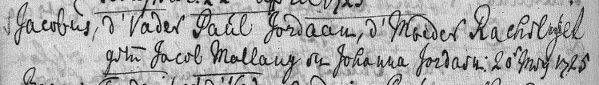 Jacobus, d'Vader Paul Jordaan, d'Moeder Rachel
get: Jacob Mallang en Johanna Jordaan: 20 May 1725